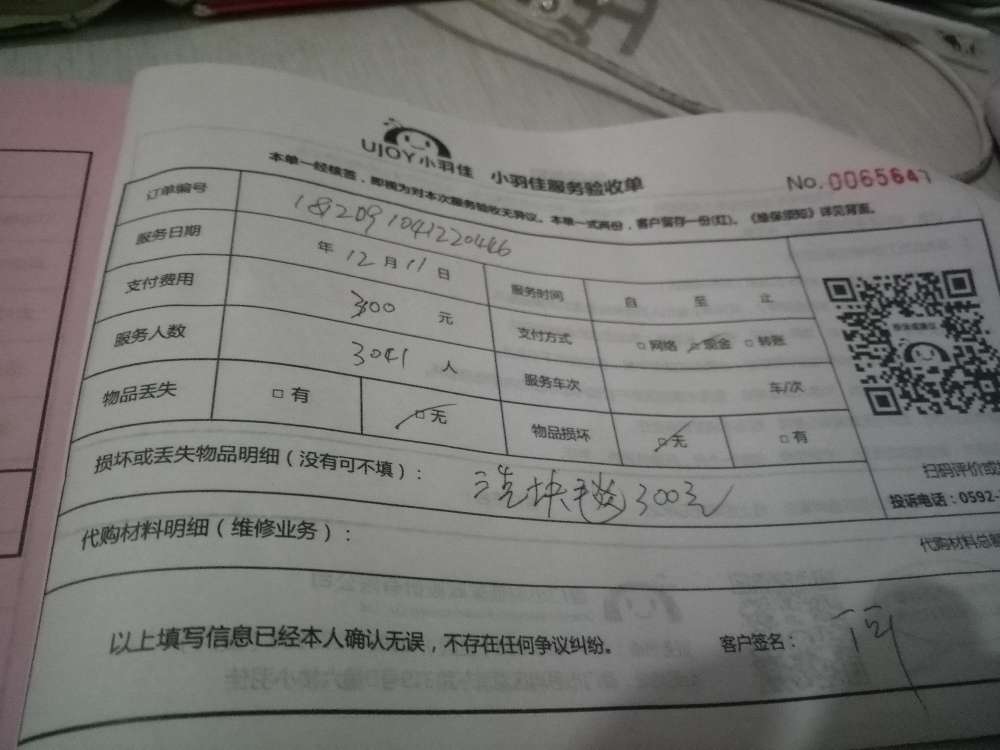 UJOY小羽佳 小羽佳服务验收单
No.0065647
本单一经核签，即视为对本次服务验收无异议。本单一式两份，客户留存一份(红)。《维保须知》详见背面。
订单编号 182091041220446
服务日期 年 12 月 11 日 服务时间 自 至 止
支付费用 300 元 支付方式 □网络 □现金 □转账
服务人数 3041 人 服务车次 车/次
物品丢失 □有 □无 物品损坏 □无 □有
损坏或丢失物品明细（没有可不填）： 300元
扫码评价或
投诉电话：0592-
代购材料明细（维修业务）：
代购材料总
以上填写信息已经本人确认无误，不存在任何争议纠纷。 客户签名：